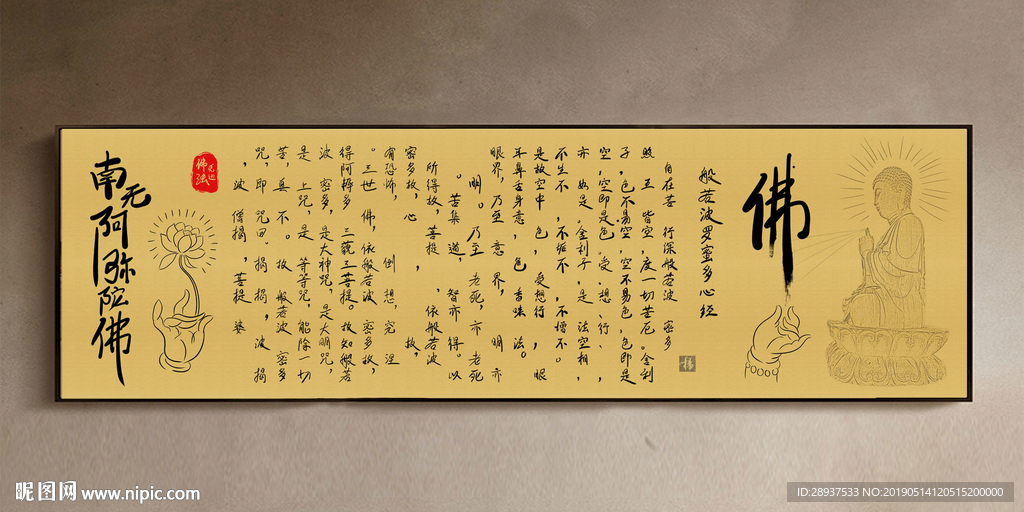 佛
般若波罗蜜多心经
自在菩 行深般若波 密多
照 五 皆空,度一切苦厄。舍利
子,色不易空,空不易色,色即是
空,空即是色。受、想、行、,
亦 如是。舍利子,是 法空相,
不生不 ,不垢不 ,不增不 。
是故空中 色,受想行 ,眼
耳鼻舌身意,色 香味 法。
眼界,乃至 意 界, 明 亦
明。乃至 老死,亦 老死
。苦集 道, 智亦 得。以
所得故,菩提 , ,依般若波
密多故,心 故,
有恐怖, 倒 想,究 涅
。三世 佛,依般若波 密多故,
得阿耨多 三藐三菩提。故知般若
波 密多,是大神咒,是大明咒,
是 上咒,是 等等咒,能除一切
苦,真 不 。故 般若波 密多
咒,即 咒曰。揭 揭 ,波 揭
,波 僧揭 ,菩提 婆
南无阿弥陀佛
昵图网 www.nipic.com
ID:28937533 NO:20190514120515200000